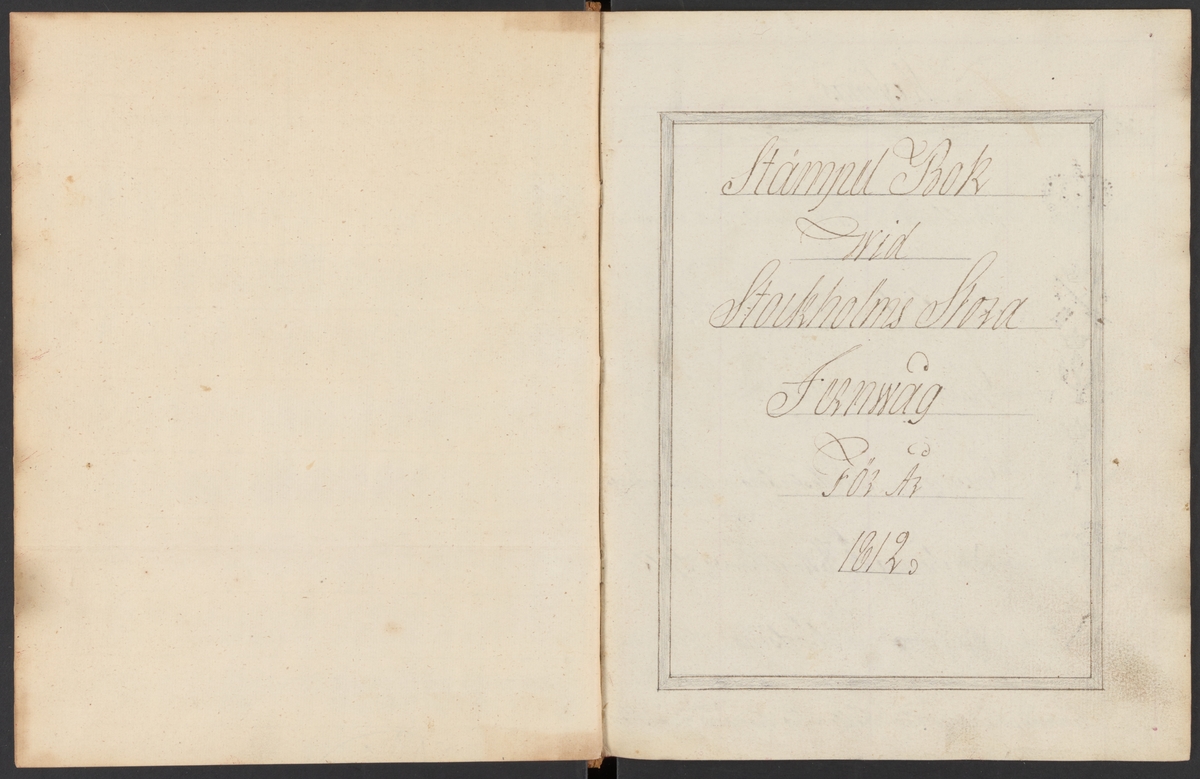 Stämpel Bok
wid
Stockholms Stora
Jernwåg
För År
1812.